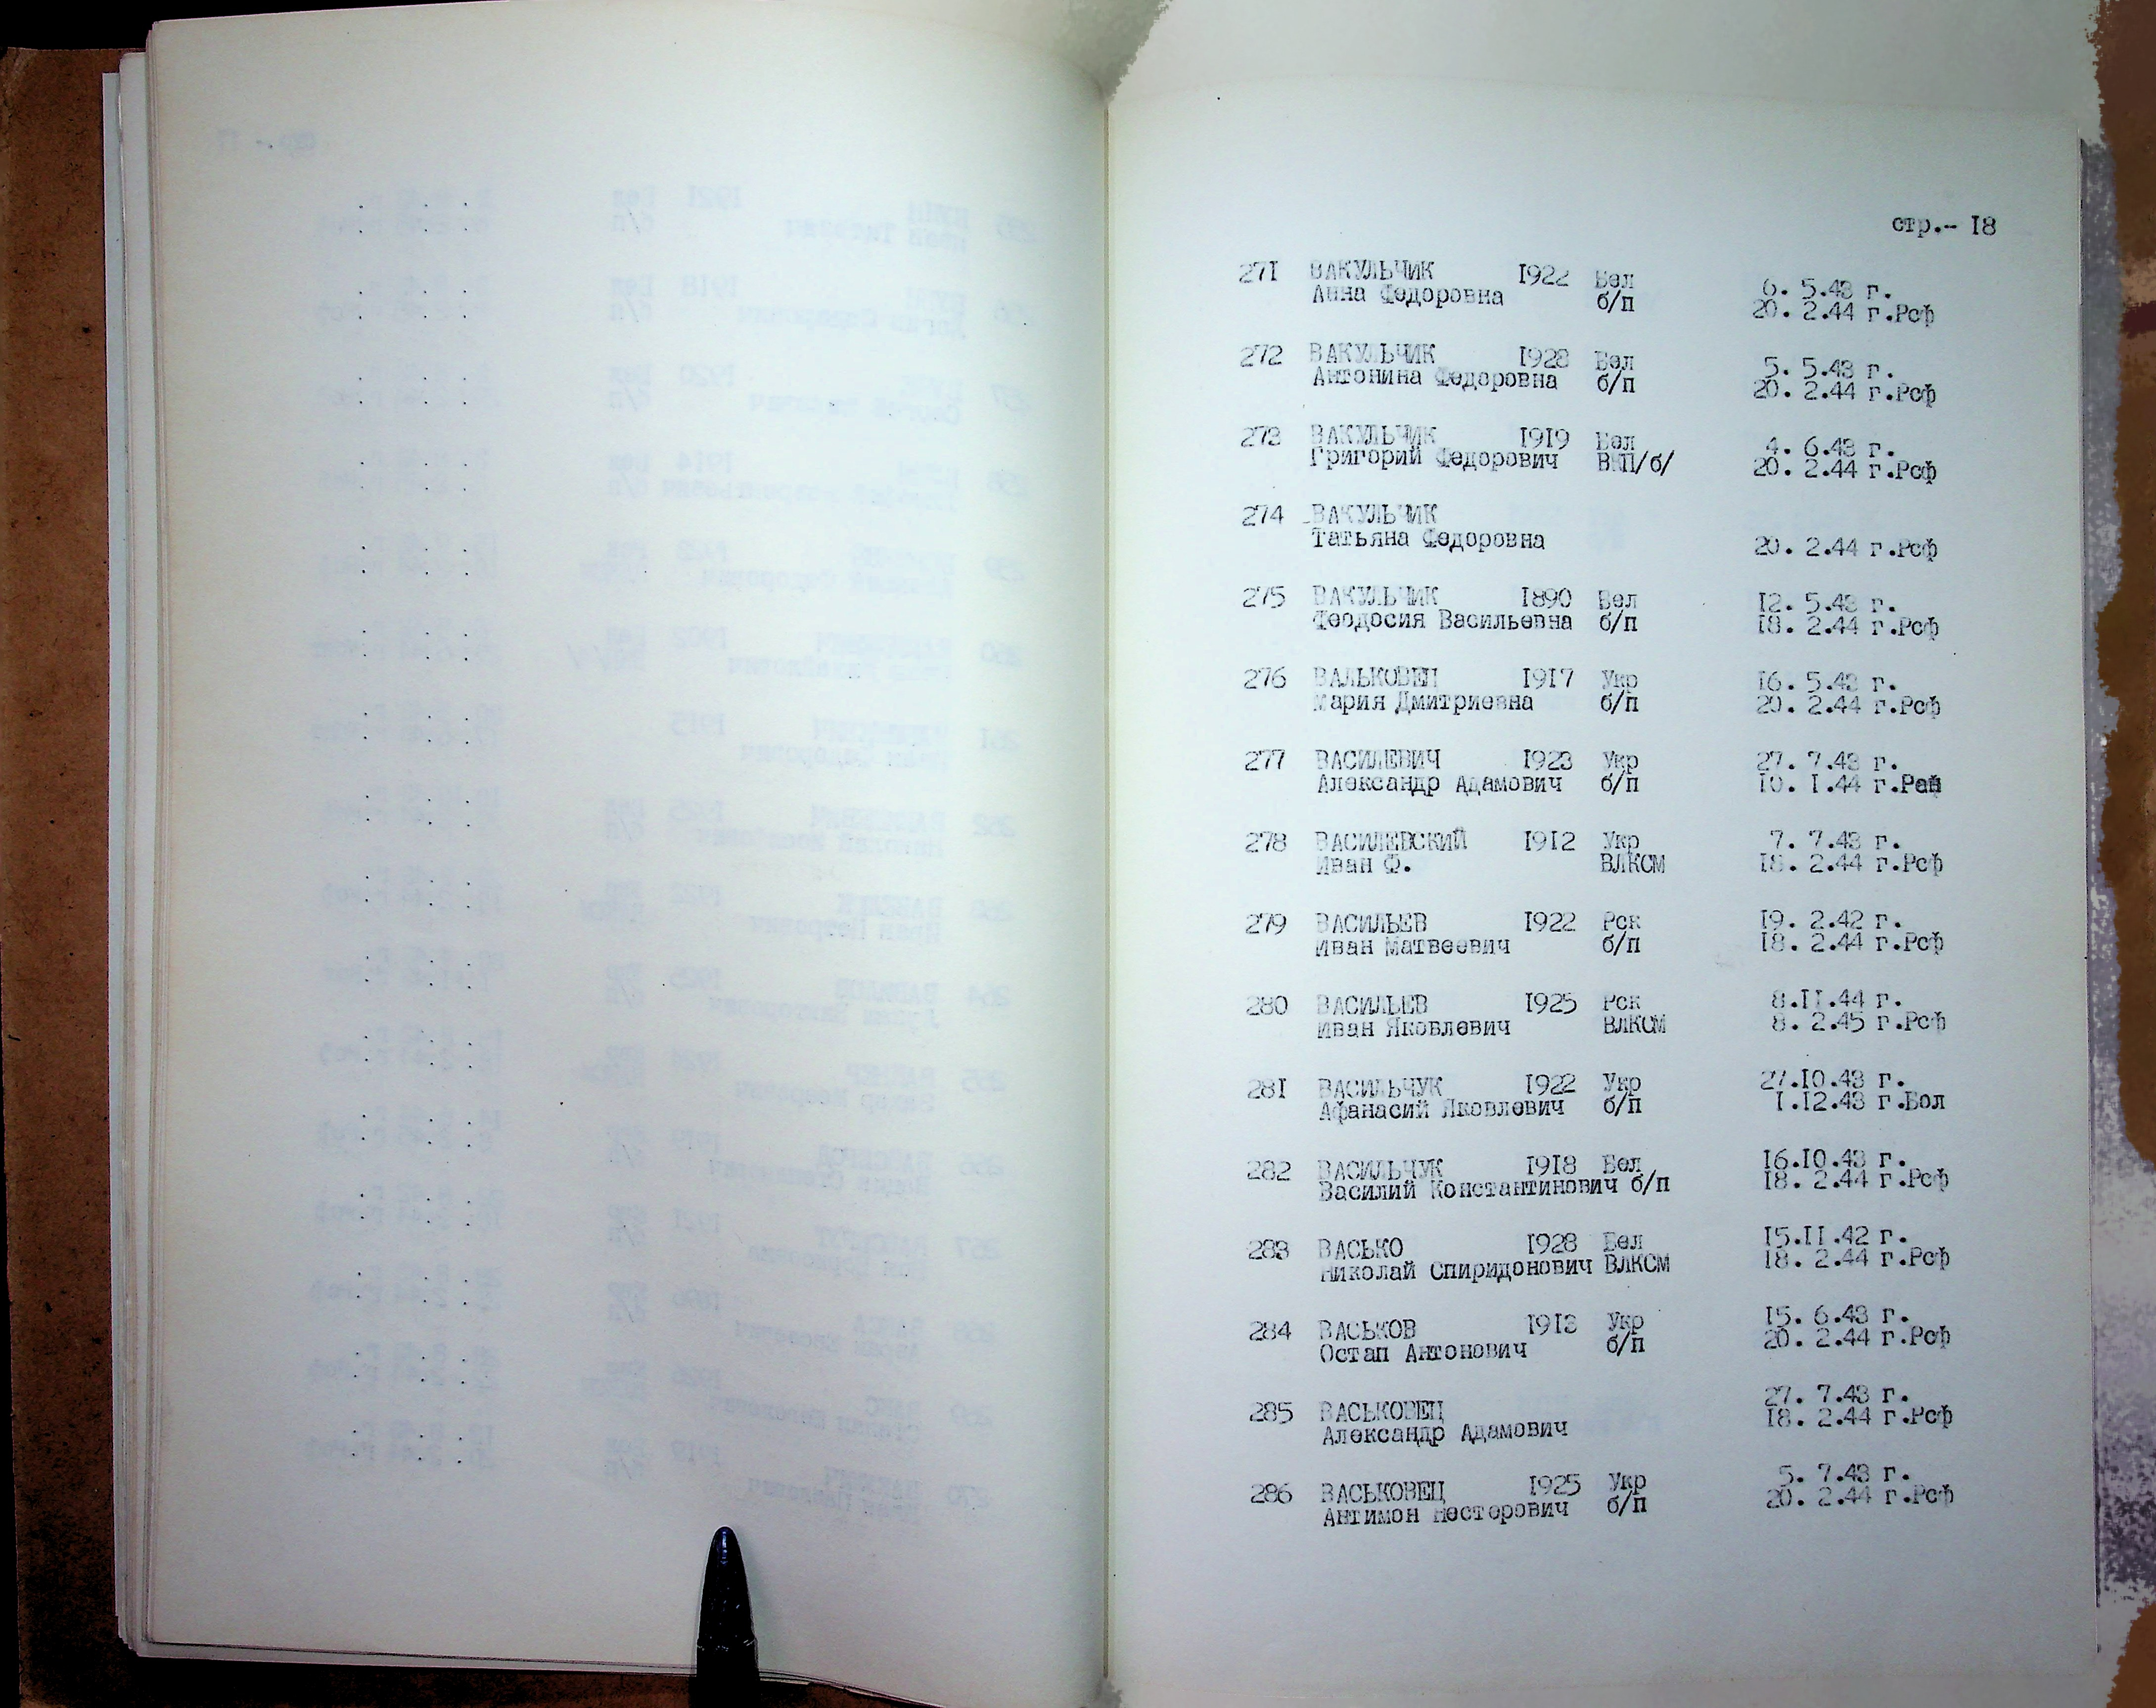 стр.- 18
271 ВАКУЛЬЧИК 1922 Бел 6. 5.43 г.
Анна Федоровна б/п 20. 2.44 г.Рсф
272 ВАКУЛЬЧИК 1928 Бел 5. 5.43 г.
Антонина Федоровна б/п 20. 2.44 г.Рсф
273 ВАКУЛЬЧИК 1919 Бел 4. 6.43 г.
Григорий Федорович ВКП/б/ 20. 2.44 г.Рсф
274 ВАКУЛЬЧИК
Татьяна Федоровна 20. 2.44 г.Рсф
275 ВАКУЛЬЧИК 1890 Бел 12. 5.43 г.
Феодосия Васильевна б/п 18. 2.44 г.Рсф
276 ВАЛЬКОВЕЦ 1917 Укр 16. 5.43 г.
Мария Дмитриевна б/п 20. 2.44 г.Рсф
277 ВАСИЛЕВИЧ 1923 Укр 27. 7.43 г.
Александр Адамович б/п 10. 1.44 г.Ран
278 ВАСИЛЕВСКИЙ 1912 Укр 7. 7.43 г.
Иван Ф. ВЛКСМ 18. 2.44 г.Рсф
279 ВАСИЛЬЕВ 1922 Рск 19. 2.42 г.
Иван Матвеевич б/п 18. 2.44 г.Рсф
280 ВАСИЛЬЕВ 1925 Рск 8.11.44 г.
Иван Яковлевич ВЛКСМ 8. 2.45 г.Рсф
281 ВАСИЛЬЧУК 1922 Укр 27.10.43 г.
Афанасий Яковлевич б/п 1.12.43 г.Бол
282 ВАСИЛЬЧУК 1918 Бел 16.10.43 г.
Василий Константинович б/п 18. 2.44 г.Рсф
283 ВАСЬКО 1928 Бел 15.11.42 г.
Николай Спиридонович ВЛКСМ 18. 2.44 г.Рсф
284 ВАСЬКОВ 1913 Укр 15. 6.43 г.
Остап Антонович б/п 20. 2.44 г.Рсф
285 ВАСЬКОВЕЦ 27. 7.43 г.
Александр Адамович 18. 2.44 г.Рсф
286 ВАСЬКОВЕЦ 1925 Укр 5. 7.43 г.
Антимон Нестерович б/п 20. 2.44 г.Рсф